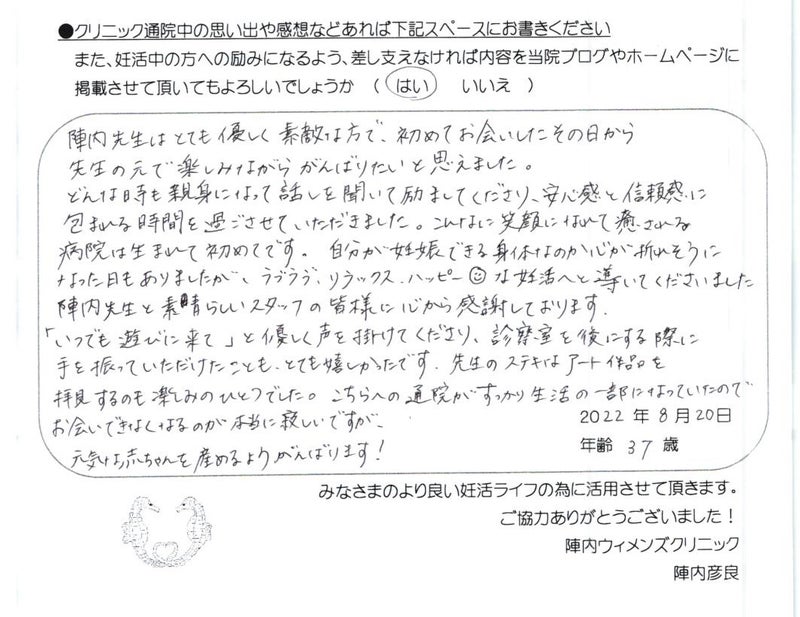 ●クリニック通院中の思い出や感想などあれば下記スペースにお書きください
また、妊活中の方への励みになるよう、差し支えなければ内容を当院ブログやホームページに
掲載させて頂いてもよろしいでしょうか （ はい いいえ ）
陣内先生はとても優しく素敵な方で、初めてお会いしたその日から
先生の元で楽しみながらがんばりたいと思えました。
どんな時も親身になって話しを聞いて励ましてくださり、安心感と信頼感に
包まれる時間を過ごさせていただきました。こんなに笑顔になれて癒される
病院は生まれて初めてです。自分が妊娠できる身体なのか心が折れそうに
なった日もありましたが、ラブラブ、リラックス、ハッピー☺な妊活へと導いてくださいました
陣内先生と素晴らしいスタッフの皆様に心から感謝しております。
「いつでも遊びに来て」と優しく声を掛けてくださり、診察室を後にする際に
手を振っていただけたことも、とても嬉しかったです。先生のステキなアート作品を
拝見するのも楽しみのひとつでした。こちらへの通院がすっかり生活の一部になっていたので
お会いできなくなるのが本当に寂しいですが、
元気な赤ちゃんを産めるようがんばります！
2022年8月20日
年齢 37歳
みなさまのより良い妊活ライフの為に活用させて頂きます。
ご協力ありがとうございました！
陣内ウィメンズクリニック
陣内彦良